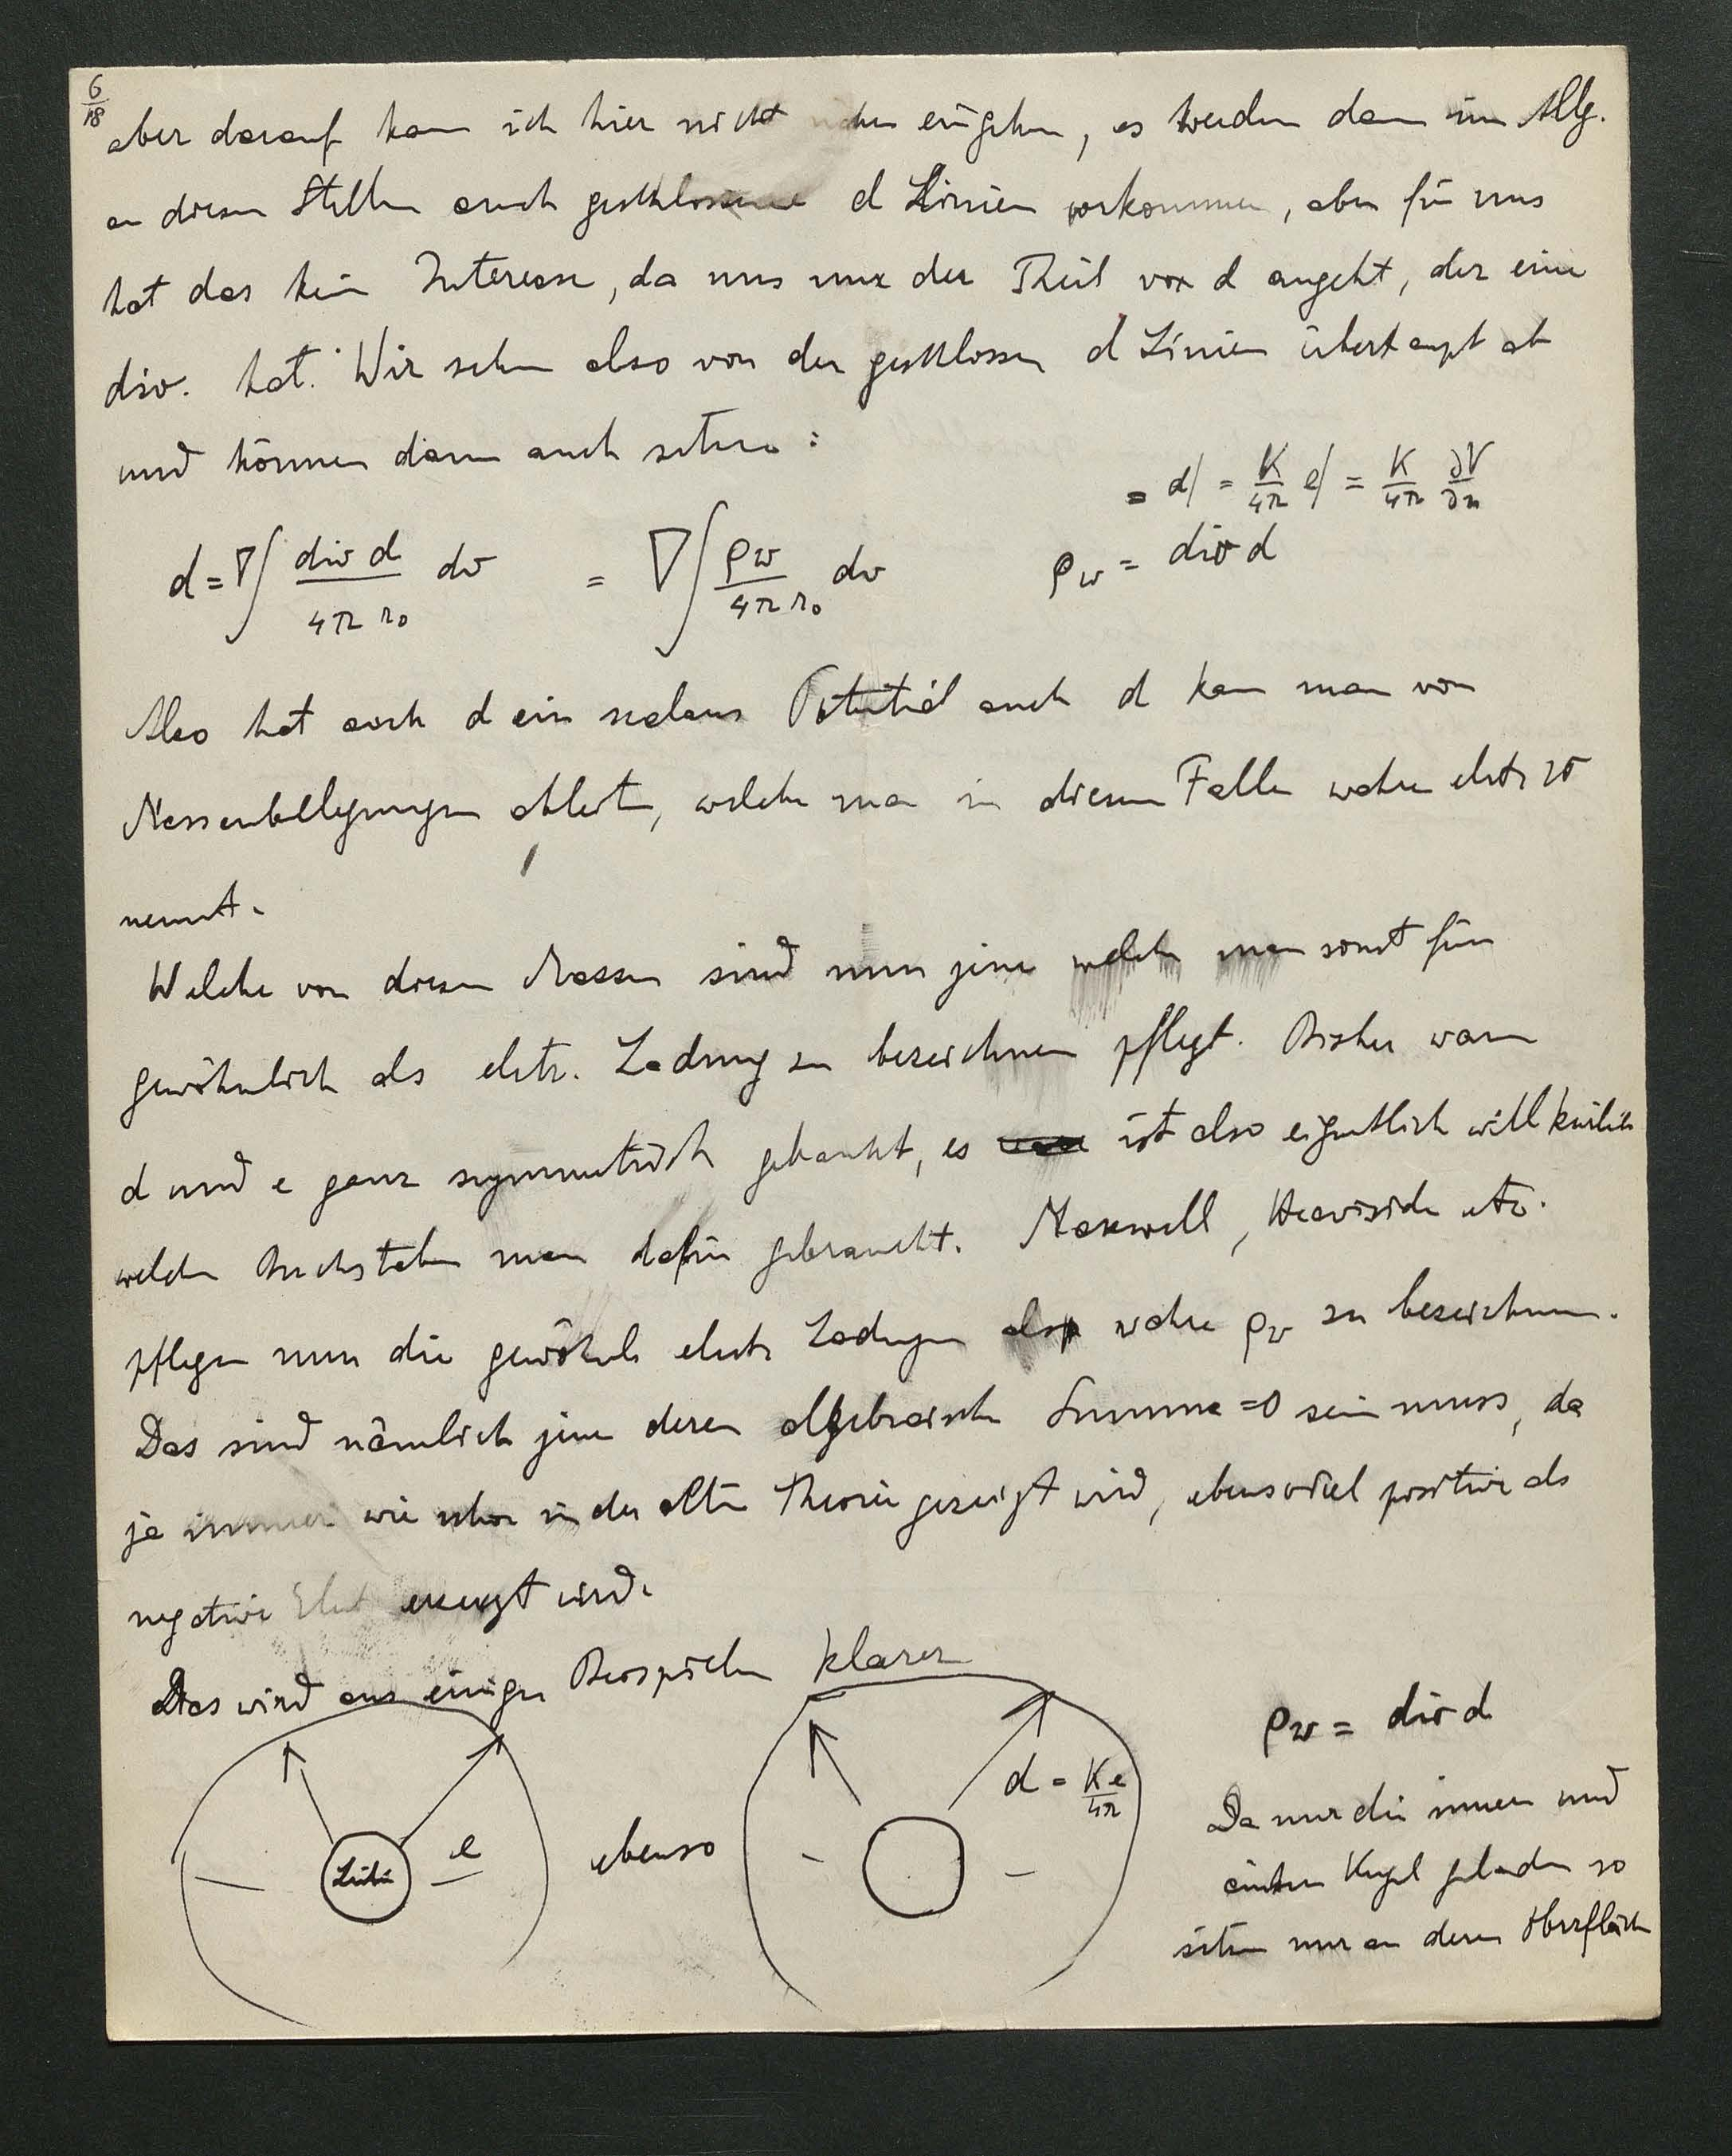 6/18
aber darauf kann ich hier nicht näher eingehen, es werden dann im Allg.
an diesen Stellen auch geschlossene d Linien vorkommen, aber für uns
hat das kein Interesse, da uns nur der Theil von d angeht, der eine
div. hat. Wir sehen also von den geschlossen d Linien überhaupt ab
und können dann auch setzen:
= d| = K/4π e| = K/4π ∂V/∂n
d = ∇∫ div d / 4π r₀ dv = ∇∫ ρw / 4π r₀ dv ρw = div d
Also hat auch d ein scalares Potential auch d kann man von
Massenbelegungen ableiten, welche man in diesem Falle wahre elektr
nennt.
Welche von diesen Massen sind nun jene welche man sonst für
gewöhnlich als elctr. Ladung zu bezeichnen pflegt. Bisher waren
d und e ganz symmetrisch gebaucht, es ist also eigentlich willkürlich
welchen Buchstaben man dafür gebraucht. Maxwell, Heaviside etc.
pflegen nun die gewöhnl elect Ladungen als wahre ρw zu bezeichnen.
Das sind nämlich jene deren algebraische Summe =0 sein muss, da
ja immer wie schon in der alten Theorie gezeigt wird, ebensoviel positive als
negative Elect erzeugt wird.
Das wird aus einigen Beispielen klarer
Leiter e
ebenso
d = Ke/4π
ρw = div d
Da nur die innere und
äussere Kugel geladen so
sitzen nur an deren Oberfläch